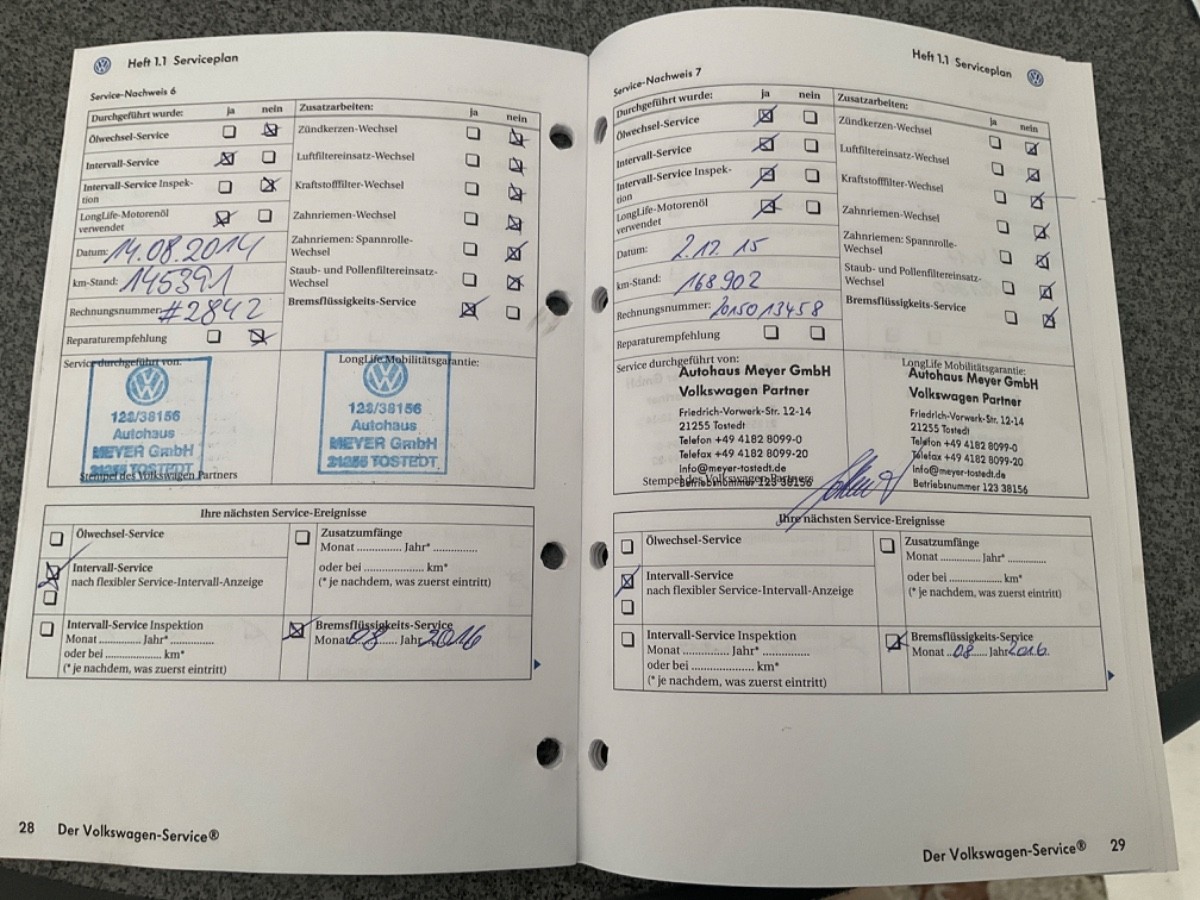 Heft 1.1 Serviceplan
Service-Nachweis 6
Durchgeführt wurde: ja nein Zusatzarbeiten: ja nein
Ölwechsel-Service Zündkerzen-Wechsel
Intervall-Service Luftfiltereinsatz-Wechsel
Intervall-Service Inspek-
tion Kraftstofffilter-Wechsel
LongLife-Motorenöl
verwendet Zahnriemen-Wechsel
Datum: 14.08.2014 Zahnriemen: Spannrolle-
Wechsel
km-Stand: 145391 Staub- und Pollenfiltereinsatz-
Wechsel
Rechnungsnummer: #2842 Bremsflüssigkeits-Service
Reparaturempfehlung
Service durchgeführt von: LongLife Mobilitätsgarantie:
123/38156
Autohaus
MEYER GmbH
21255 TOSTEDT
123/38156
Autohaus
MEYER GmbH
21255 TOSTEDT
Stempel des Volkswagen Partners
Ihre nächsten Service-Ereignisse
Ölwechsel-Service
Intervall-Service
nach flexibler Service-Intervall-Anzeige
Zusatzumfänge
Monat .............. Jahr* ..............
oder bei .................... km*
(* je nachdem, was zuerst eintritt)
Intervall-Service Inspektion
Monat .............. Jahr* ..............
oder bei .................... km*
(* je nachdem, was zuerst eintritt)
Bremsflüssigkeits-Service
Monat 08 Jahr 2016
28 Der Volkswagen-Service®
Heft 1.1 Serviceplan
Service-Nachweis 7
Durchgeführt wurde: ja nein Zusatzarbeiten: ja nein
Ölwechsel-Service Zündkerzen-Wechsel
Intervall-Service Luftfiltereinsatz-Wechsel
Intervall-Service Inspek-
tion Kraftstofffilter-Wechsel
LongLife-Motorenöl
verwendet Zahnriemen-Wechsel
Datum: 2.12.15 Zahnriemen: Spannrolle-
Wechsel
km-Stand: 168902 Staub- und Pollenfiltereinsatz-
Wechsel
Rechnungsnummer: 2015013458 Bremsflüssigkeits-Service
Reparaturempfehlung
Service durchgeführt von: LongLife Mobilitätsgarantie:
Autohaus Meyer GmbH
Volkswagen Partner
Friedrich-Vorwerk-Str. 12-14
21255 Tostedt
Telefon +49 4182 8099-0
Telefax +49 4182 8099-20
Info@meyer-tostedt.de
Betriebsnummer 123 38156
Autohaus Meyer GmbH
Volkswagen Partner
Friedrich-Vorwerk-Str. 12-14
21255 Tostedt
Telefon +49 4182 8099-0
Telefax +49 4182 8099-20
Info@meyer-tostedt.de
Betriebsnummer 123 38156
Stempel des Volkswagen Partners
Ihre nächsten Service-Ereignisse
Ölwechsel-Service
Intervall-Service
nach flexibler Service-Intervall-Anzeige
Zusatzumfänge
Monat .............. Jahr* ..............
oder bei .................... km*
(* je nachdem, was zuerst eintritt)
Intervall-Service Inspektion
Monat .............. Jahr* ..............
oder bei .................... km*
(* je nachdem, was zuerst eintritt)
Bremsflüssigkeits-Service
Monat 08 Jahr 2016.
Der Volkswagen-Service® 29